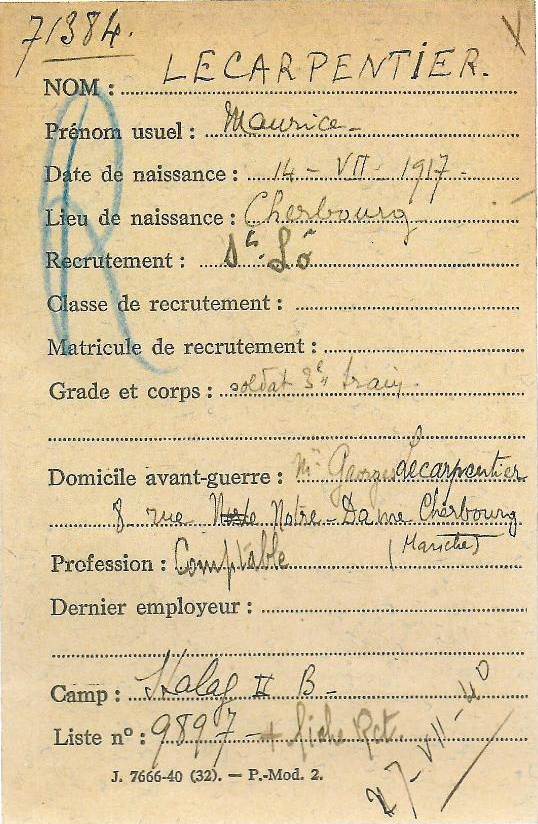 71384.
NOM : LECARPENTIER.
Prénom usuel : Maurice
Date de naissance : 14 - VII - 1917 -
Lieu de naissance : Cherbourg
Recrutement : St. Lô
Classe de recrutement :
Matricule de recrutement :
Grade et corps : soldat 3e train
Domicile avant-guerre : Mr Georges Lecarpentier
8 rue Notre-Dame Cherbourg
Profession : Comptable (Manche)
Dernier employeur :
Camp : Stalag II B -
Liste nº : 9897 + fiche Rct.
27-VII-40
J. 7666-40 (32). — P.-Mod. 2.